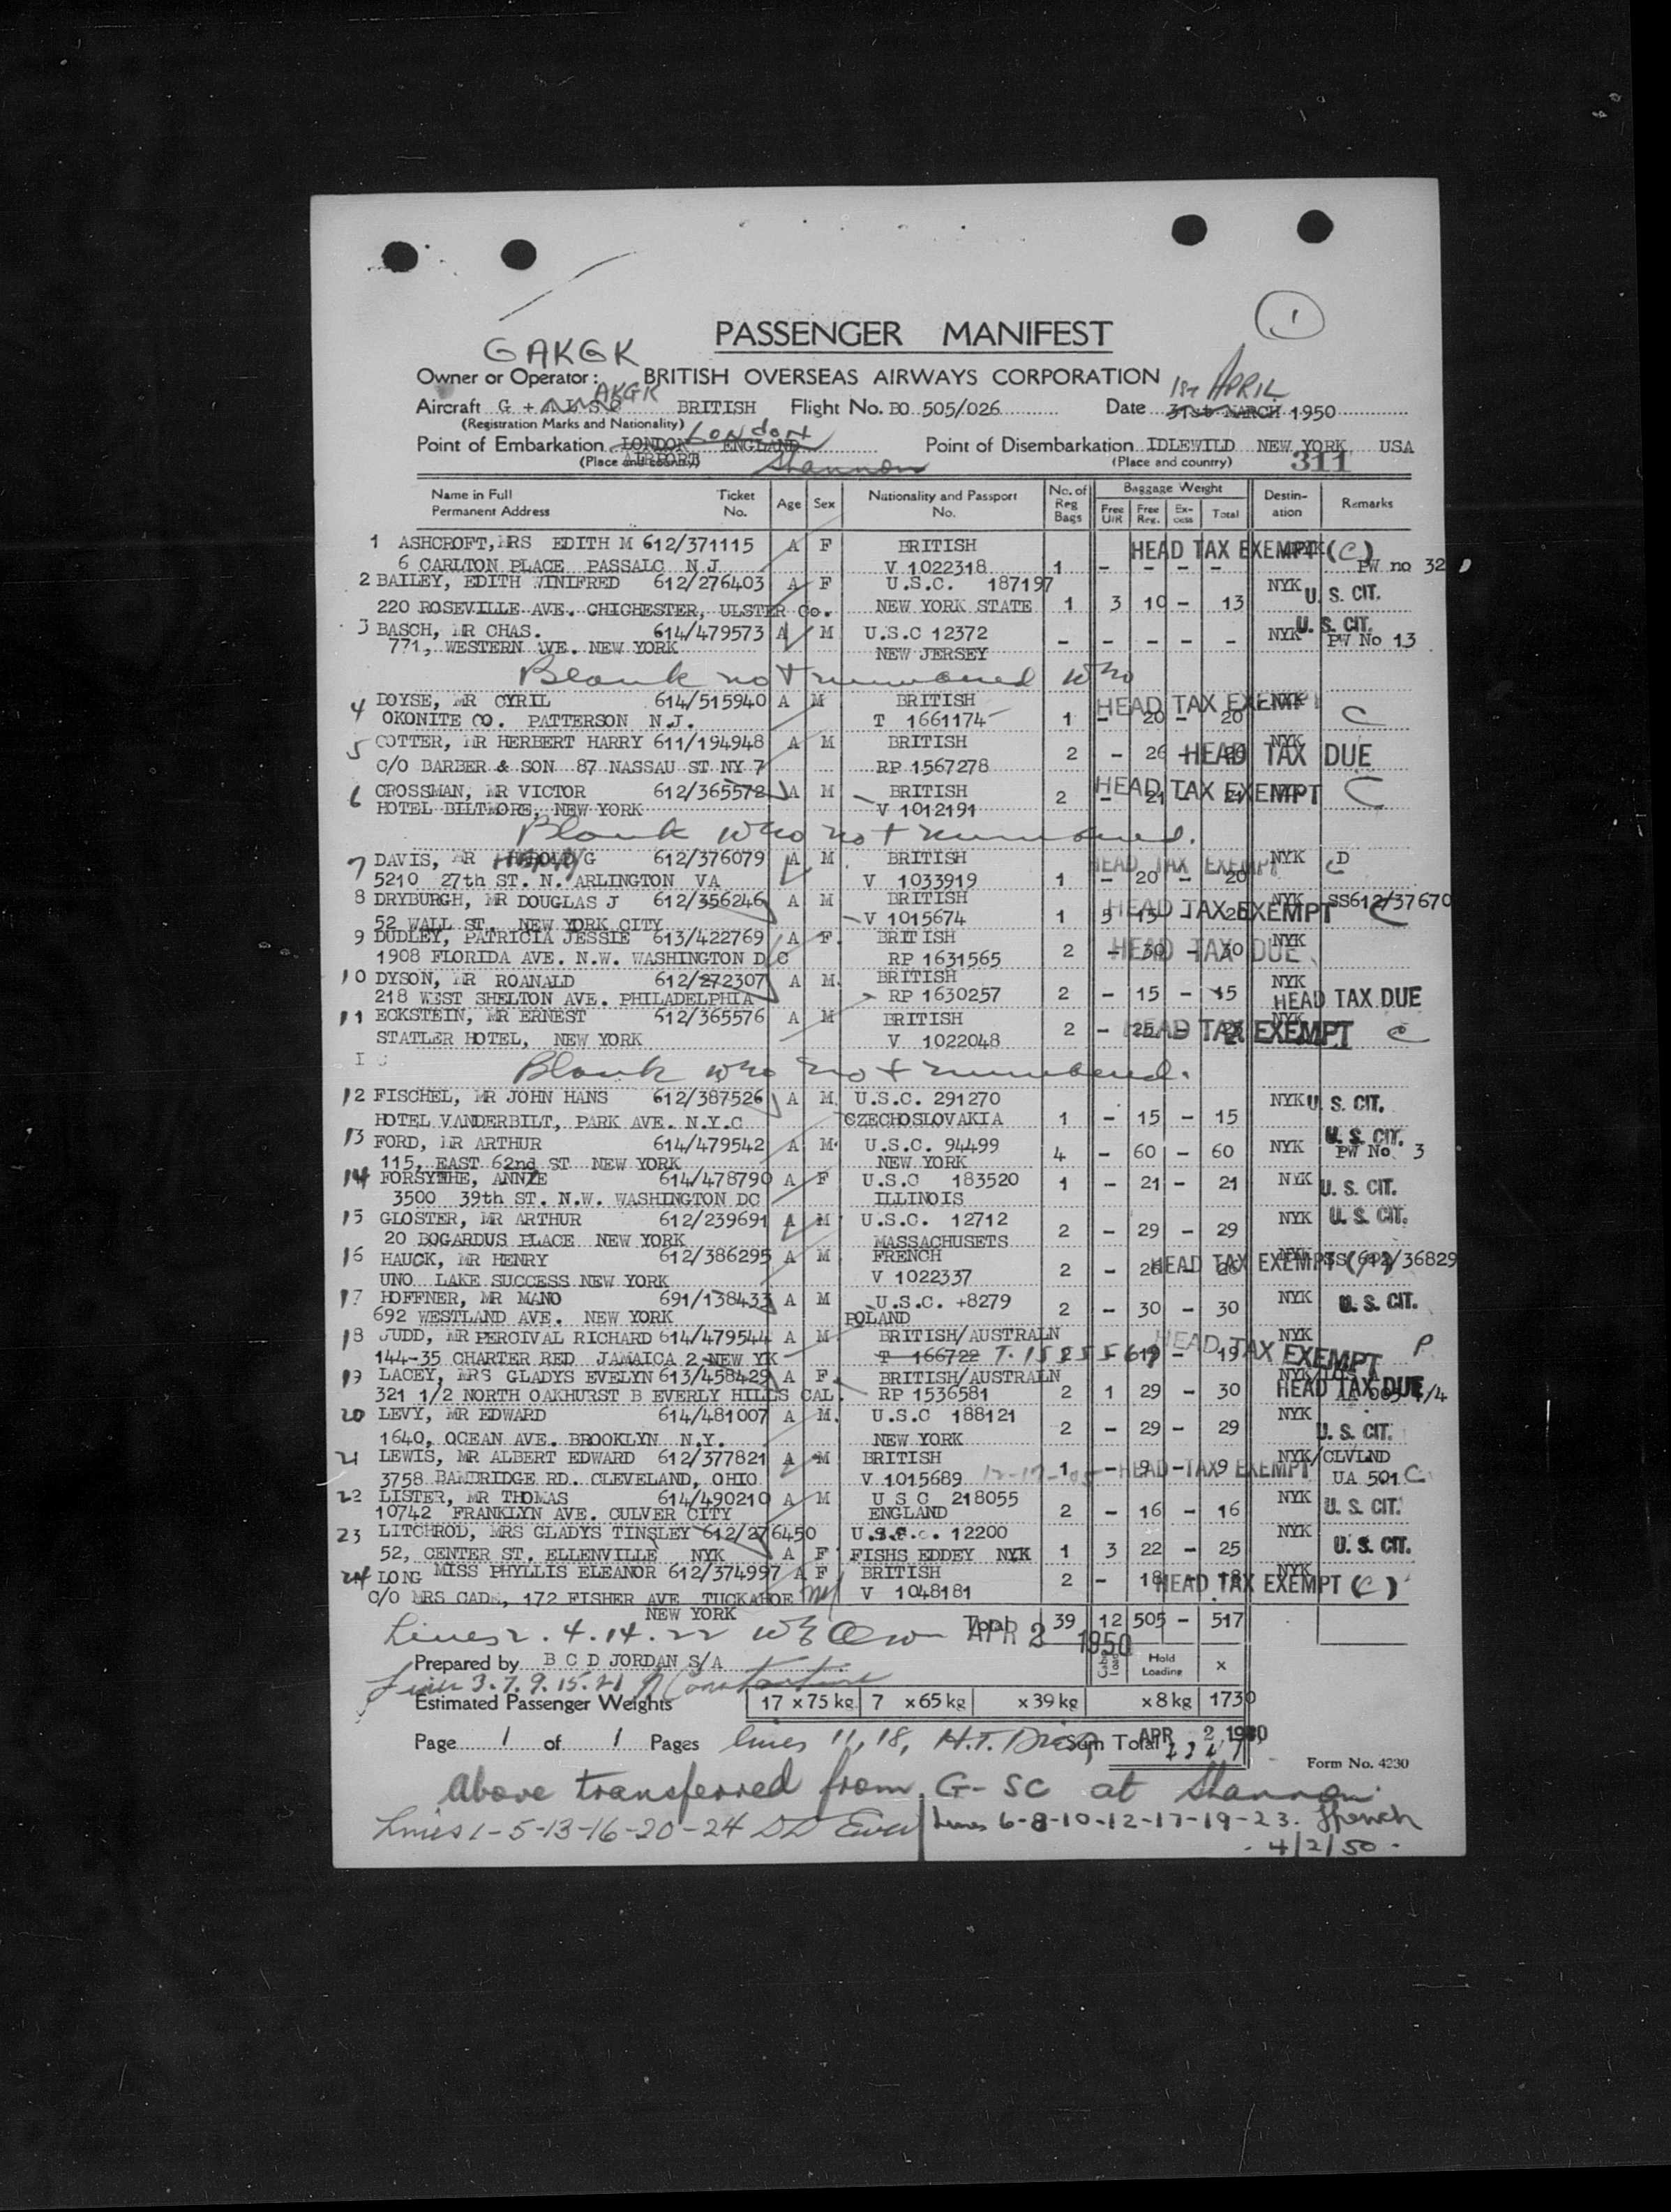 1
PASSENGER MANIFEST
GAKGK
Owner or Operator: BRITISH OVERSEAS AIRWAYS CORPORATION
AKGK 1st APRIL
Aircraft G + BRITISH Flight No. BO 505/026 Date 31st MARCH 1950
(Registration Marks and Nationality)
London
Point of Embarkation LONDON ENGLAND Point of Disembarkation IDLEWILD NEW YORK USA
AIRPORT
(Place and country) Shannon (Place and country) 311
Name in Full Ticket Age Sex Nationality and Passport No. of Baggage Weight Destin- Remarks
Permanent Address No. No. Reg Bags Free U/R Free Reg. Ex-cess Total ation
1 ASHCROFT, MRS EDITH M 612/371115 A F BRITISH HEAD TAX EXEMPT (C)
6 CARLTON PLACE PASSALC N J V 1022318 1 - - - - PW no 32
2 BAILEY, EDITH WINIFRED 612/276403 A F U.S.C. 187197 NYK U. S. CIT.
220 ROSEVILLE AVE. CHICHESTER, ULSTER Co. NEW YORK STATE 1 3 10 - 13
3 BASCH, MR CHAS. 614/479573 A M U.S.C 12372 - - - - - NYK U. S. CIT.
771, WESTERN AVE. NEW YORK NEW JERSEY PW No 13
Blank not numbered who
4 DOYSE, MR CYRIL 614/515940 A M BRITISH HEAD TAX EXEMPT NYK
OKONITE CO. PATTERSON N.J. T 1661174 1 - 20 - 20 C
5 COTTER, MR HERBERT HARRY 611/194948 A M BRITISH 2 - 26 - 26 NYK HEAD TAX DUE
C/O BARBER & SON 87 NASSAU ST NY 7 RP 1567278
6 CROSSMAN, MR VICTOR 612/365572 A M BRITISH HEAD TAX EXEMPT C
HOTEL BILTMORE, NEW YORK V 1012191 2 - 21 - 21
Blank who not numbered.
7 DAVIS, MR G 612/376079 A M BRITISH HEAD TAX EXEMPT NYK D
5210 27th ST. N. ARLINGTON VA V 1033919 1 - 20 - 20
8 DRYBURGH, MR DOUGLAS J 612/356246 A M BRITISH NYK SS612/37670
52 WALL ST. NEW YORK CITY V 1015674 1 5 15 - 20 HEAD TAX EXEMPT C
9 DUDLEY, PATRICIA JESSIE 613/422769 A F. BRITISH NYK
1908 FLORIDA AVE. N.W. WASHINGTON D C RP 1631565 2 - 30 - 30 HEAD TAX DUE
10 DYSON, MR ROANALD 612/272307 A M. BRITISH NYK
218 WEST SHELTON AVE. PHILADELPHIA RP 1630257 2 - 15 - 15 HEAD TAX DUE
11 ECKSTEIN, MR ERNEST 612/365576 A M BRITISH NYK
STATLER HOTEL, NEW YORK V 1022048 2 - 25 - HEAD TAX EXEMPT C
Blank who not numbered.
12 FISCHEL, MR JOHN HANS 612/387526 A M. U.S.C. 291270 NYK U. S. CIT.
HOTEL VANDERBILT, PARK AVE. N.Y.C CZECHOSLOVAKIA 1 - 15 - 15
13 FORD, MR ARTHUR 614/479542 A M. U.S.C. 94499 4 - 60 - 60 NYK U. S. CIT.
115, EAST 62nd ST NEW YORK NEW YORK PW No 3
14 FORSYTHE, ANNIE 614/478790 A F U.S.C 183520 1 - 21 - 21 NYK U. S. CIT.
3500 39th ST. N.W. WASHINGTON DC ILLINOIS
15 GLOSTER, MR ARTHUR 612/239691 A M U.S.C. 12712 2 - 29 - 29 NYK U. S. CIT.
20 BOGARDUS PLACE NEW YORK MASSACHUSETS
16 HAUCK, MR HENRY 612/386295 A M FRENCH HEAD TAX EXEMPT SS 612/36829
UNO LAKE SUCCESS NEW YORK V 1022337 2 - 26 - 26
17 HOFFNER, MR MANO 691/138433 A M U.S.C. +8279 2 - 30 - 30 NYK U. S. CIT.
692 WESTLAND AVE. NEW YORK POLAND
18 JUDD, MR PERCIVAL RICHARD 614/479544 A M BRITISH/AUSTRALN NYK
144-35 CHARTER RED JAMAICA 2 NEW YK T 166722 T. 1525561 - 19 - 19 HEAD TAX EXEMPT P
19 LACEY, MRS GLADYS EVELYN 613/458429 A F. BRITISH/AUSTRALN NYK/LOS A
321 1/2 NORTH OAKHURST B EVERLY HILLS CAL. RP 1536581 2 1 29 - 30 HEAD TAX DUE 1/4
20 LEVY, MR EDWARD 614/481007 A M. U.S.C 188121 2 - 29 - 29 NYK
1640, OCEAN AVE. BROOKLYN N.Y. NEW YORK U. S. CIT.
21 LEWIS, MR ALBERT EDWARD 612/377821 A M BRITISH NYK/CLVLND
3758 BAMBRIDGE RD. CLEVELAND, OHIO V 1015689 1 - 9 - 9 HEAD TAX EXEMPT UA 501 C
22 LISTER, MR THOMAS 614/490210 A M U S C 218055 2 - 16 - 16 NYK U. S. CIT.
10742 FRANKLYN AVE. CULVER CITY ENGLAND
23 LITCHROD, MRS GLADYS TINSLEY 612/276450 U.S.C. 12200 NYK
52, CENTER ST. ELLENVILLE NYK A F FISHS EDDEY NYK 1 3 22 - 25 U. S. CIT.
24 LONG MISS PHYLLIS ELEANOR 612/374997 A F BRITISH 2 - 18 - 18 NYK
C/O MRS CADE, 172 FISHER AVE TUCKAHOE M V 1048181 HEAD TAX EXEMPT (C)
NEW YORK
Lines 2. 4. 14. 22 Total 39 12 505 - 517
APR 2 1950
Prepared by B C D JORDAN S/A Cabin Load Hold Loading x
Lines 3. 7. 9. 15. 21 Constantine
Estimated Passenger Weights 17 x 75 kg 7 x 65 kg x 39 kg x 8 kg 1730
Page 1 of 1 Pages lines 11, 18, Sum Total APR 2 1950
Form No. 4230
Above transferred from G-SC at Shannon.
Lines 1-5-13-16-20-24 Lines 6-8-10-12-17-19-23. French
- 4/2/50 -